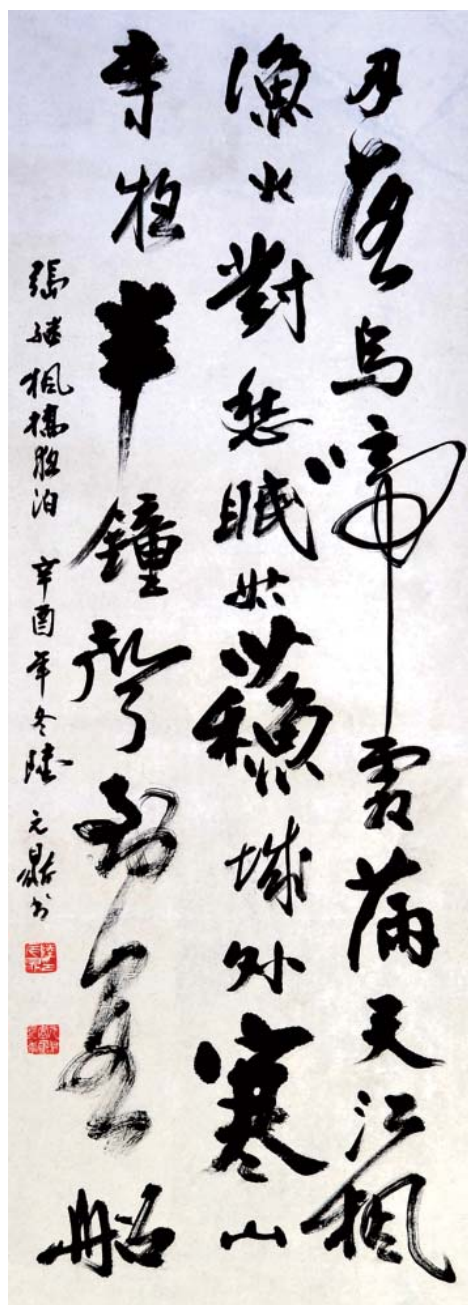 月落烏啼霜滿天江楓
漁火對愁眠姑蘓城外寒山
寺夜半鐘聲到客船
張繼楓橋夜泊 辛酉年冬陸元鼎书